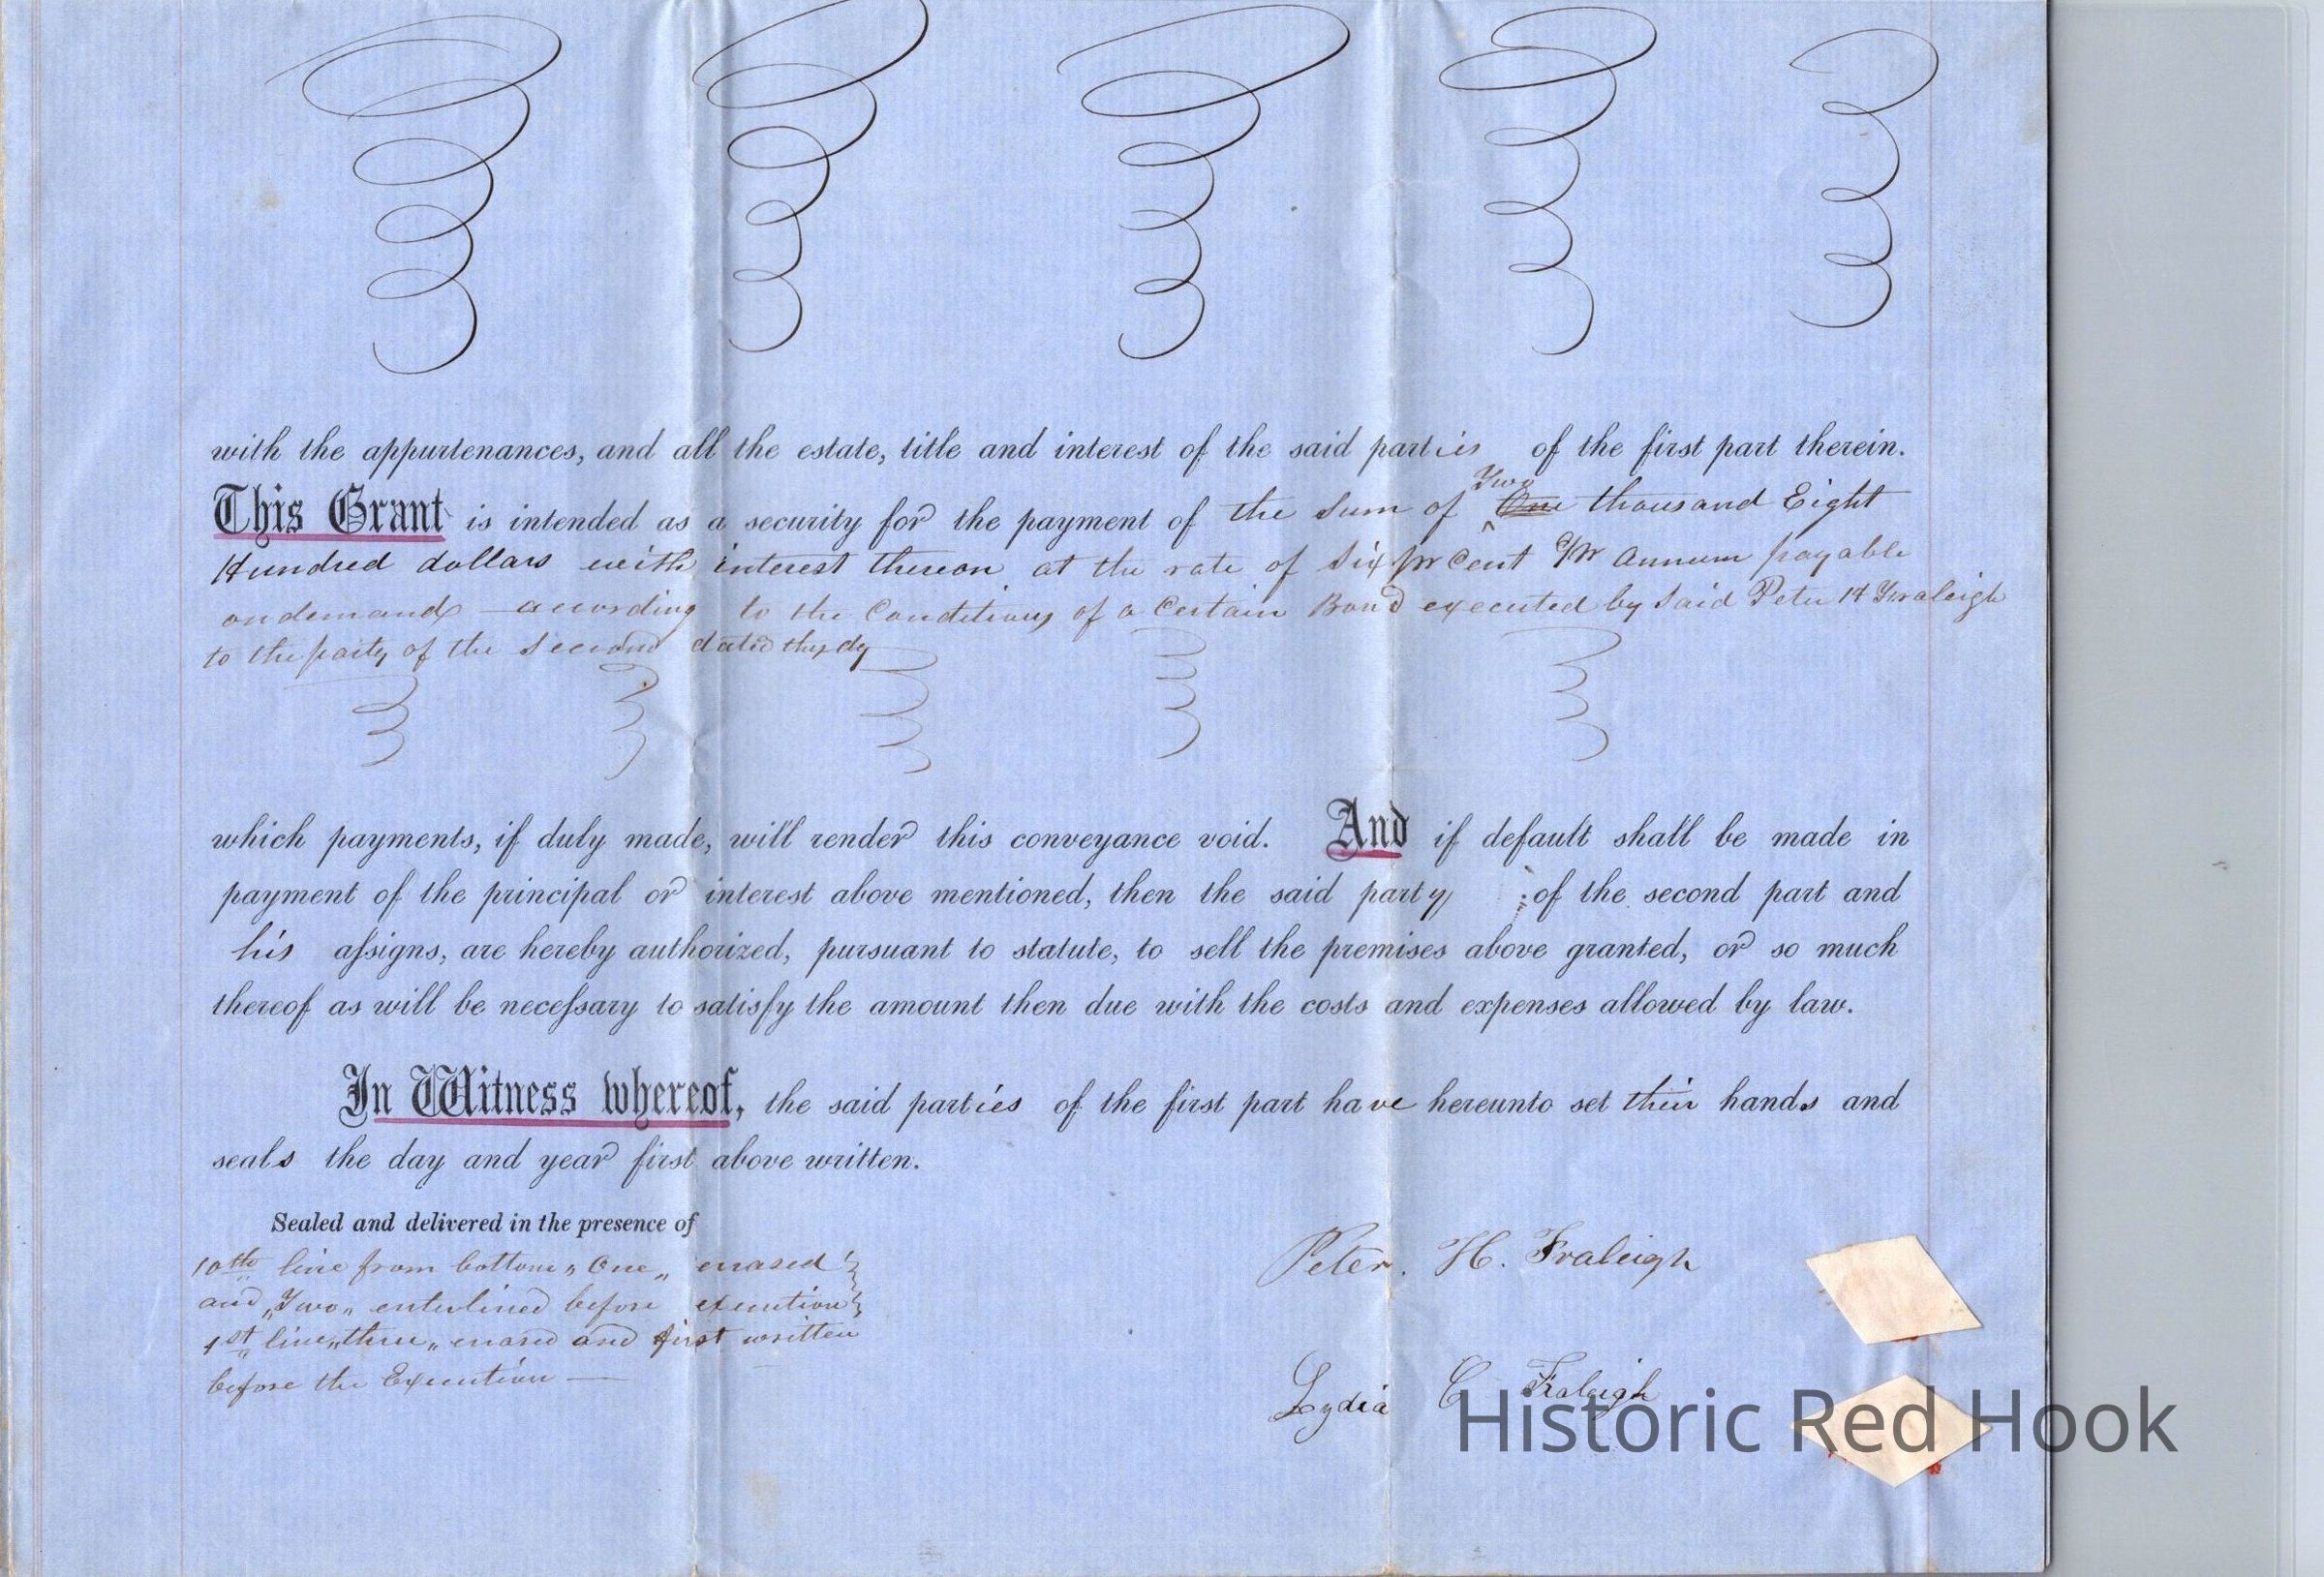 with the appurtenances, and all the estate, title and interest of the said parties of the first part therein.
Two
This Grant is intended as a security for the payment of the Sum of One thousand Eight
Hundred dollars with interest thereon at the rate of Six pr Cent pr Annum payable
on demand according to the Conditions of a Certain Bond executed by Said Peter H Fraleigh
to the party of the Second dated this dy
which payments, if duly made, will render this conveyance void. And if default shall be made in
payment of the principal or interest above mentioned, then the said party of the second part and
his assigns, are hereby authorized, pursuant to statute, to sell the premises above granted, or so much
thereof as will be necessary to satisfy the amount then due with the costs and expenses allowed by law.
In Witness whereof, the said parties of the first part have hereunto set their hands and
seals the day and year first above written.
Sealed and delivered in the presence of
10th line from bottom "One" erased
and "Two" enterlined before execution
1st line "three" erased and first written
before the Execution —
Peter. H. Fraleigh
Lydia C Fraleigh
Historic Red Hook